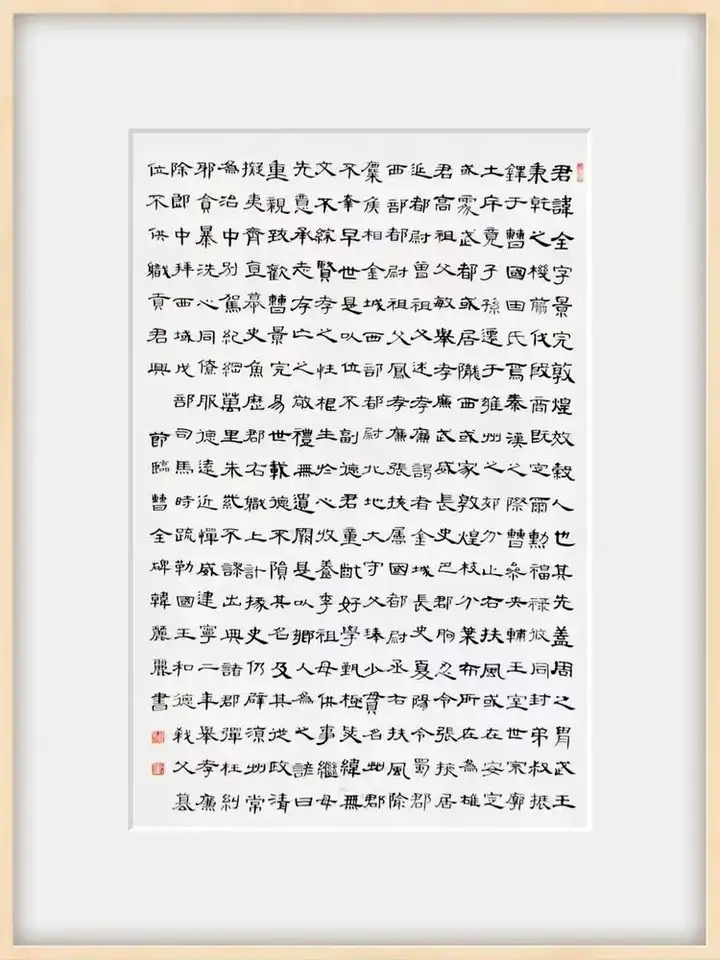 君諱全字景完敦煌效穀人也其先蓋周之胄武王
秉乾之機翦伐殷商既定爾勳福祿攸同封弟叔振
鐸于曹國因氏焉秦漢之際曹參夾輔王室世宗廓
土斥竟子孫遷于雍州之郊分止右扶風或在安定
或處武都或居隴西或家敦煌枝分葉布所在為雄
君高祖父敏舉孝廉武威長史巴郡朐忍令張掖居
延都尉曾祖父述孝廉謁者金城長史夏陽令蜀郡
西部都尉祖父鳳孝廉張掖屬國都尉丞右扶風隃
麋侯相金城西部都尉北地大守父琫少貫名州郡
不幸早世是以位不副德君童齔好學甄極毖緯無
文不綜賢孝之性根生於心收養季祖母供事繼母
先意承志存亡之敬禮無遺闕是以鄉人為之諺曰
重親致歡曹景完易世載德不隕其名及其從政清
擬夷齊直慕史魚歷郡右職上計掾史仍辟涼州常
為治中別駕紀綱萬里朱紫不謬出典諸郡彈枉糾
邪貪暴洗心同僚服德遠近憚威建寧二年舉孝廉
除郎中拜西域戊部司馬時疏勒國王和德弒父篡
位不供職貢君興
節臨曹全碑韓麗書